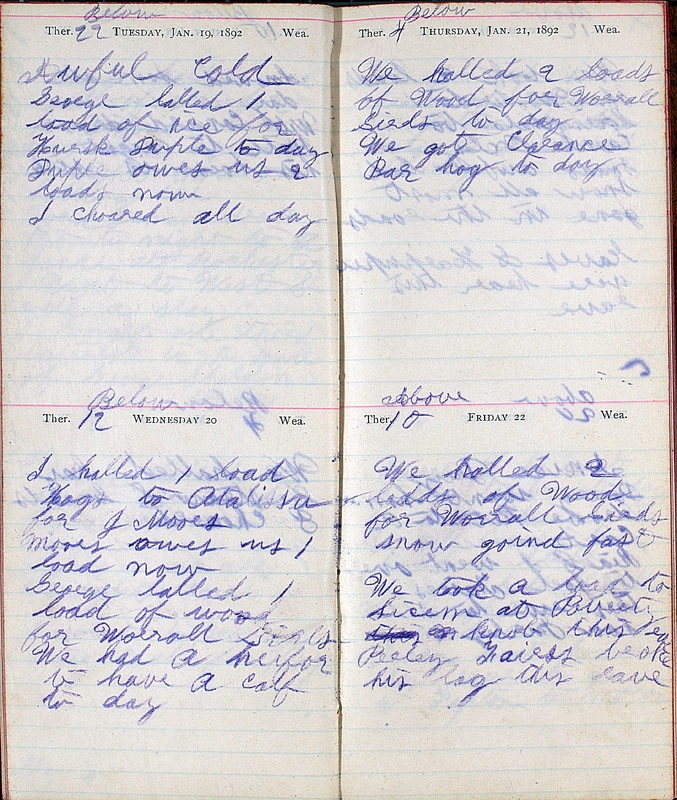 Below
Ther. 22 TUESDAY, JAN. 19, 1892 Wea.
Awful Cold
George halled 1
load of ice for
Duple to day
Duple owes us 2
loads now
I choared all day
Below
Ther. 12 WEDNESDAY 20 Wea.
I halled 1 load
Hogs to Atalissa
for J Moores
Moores owes us 1
load now
George halled 1
load of wood
for Worrall
We had a heifor
to have a calf
to day
Below
Ther. 4 THURSDAY, JAN. 21, 1892 Wea.
We halled 2 loads
of Wood for Worrall
to day
We got Clarance
Bar hog to day
Above
Ther. 10 FRIDAY 22 Wea.
We halled 2
loads of Wood
for Worrall
snow goind fast
We took a to
at
knob this
broke
his leg this eave